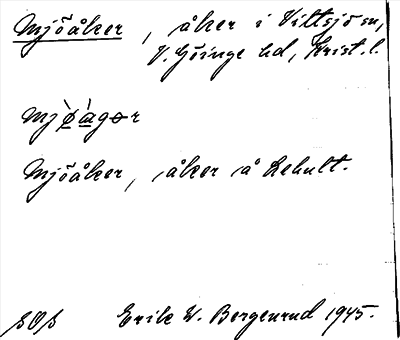 Mjöåker, åker i Vittsjö sn,
V. Göinge hd, Krist. l.
mjø̀àgər
Mjöåker, åker å Lehult.
SOS Erik W. Bergenrud 1945.